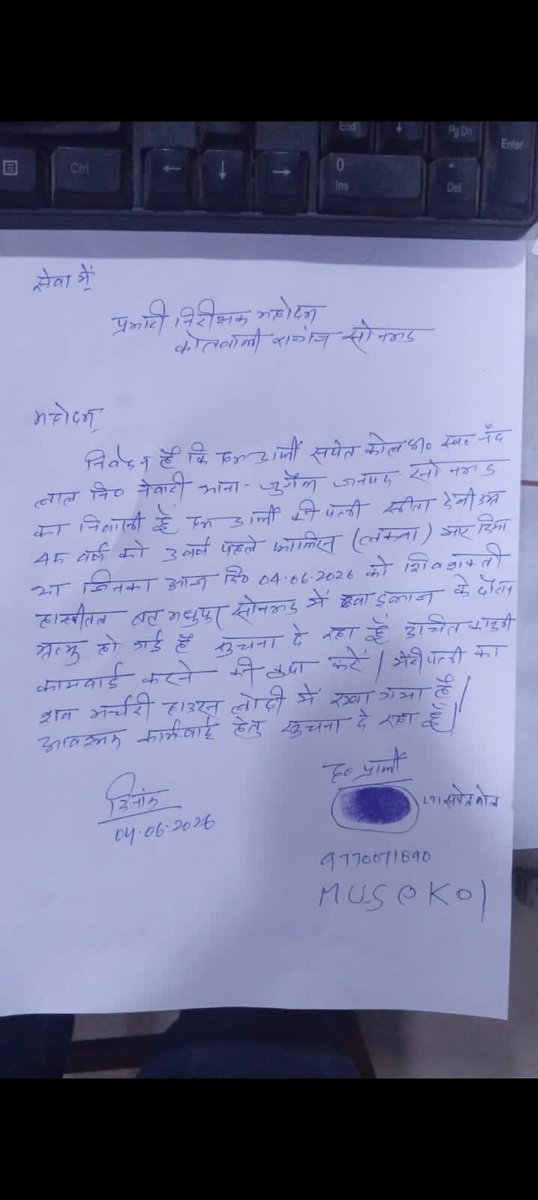 End ↓ Pg Dn Enter
Ctrl ← ↓ → 0 Ins . Del
सेवा में,
प्रभारी निरीक्षक महोदय
कोतवाली सोनभद्र
महोदय,
निवेदन है कि हम प्रार्थी कोल स्व० नंद
लाल नि० थाना - जुगैल जनपद सोनभद्र
का निवासी हूँ हम प्रार्थी की पत्नी देवी उम्र
45 वर्ष को 3 वर्ष पहले फालिस (लकवा) मार दिया
था जिनका आज दि० 04.06.2026 को
हास्पीतल मधुपुर सोनभद्र में दवा इलाज के दौरान
मृत्यु हो गई है सुचना दे रहा हूँ उचित कानुनी
कार्यवाई करने की कृपा करें| मेरी पत्नी का
शव मर्चरी हाउस लोढ़ी में रखा गया है|
आवश्यक कार्यवाई हेतु सुचना दे रहा हूँ|
ह० प्रार्थी
दिनांक
04.06.2026
9770071890